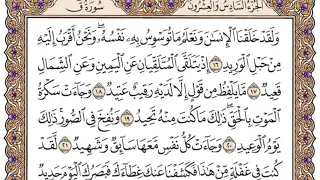 الجزء السادس والعشرون
سورة ق
وَلَقَدْ خَلَقْنَا ٱلْإِنسَٰنَ وَنَعْلَمُ مَا تُوَسْوِسُ بِهِۦ نَفْسُهُۥ ۖ وَنَحْنُ أَقْرَبُ إِلَيْهِ
مِنْ حَبْلِ ٱلْوَرِيدِ ١٦ إِذْ يَتَلَقَّى ٱلْمُتَلَقِّيَانِ عَنِ ٱلْيَمِينِ وَعَنِ ٱلشِّمَالِ
قَعِيدٌ ١٧ مَّا يَلْفِظُ مِن قَوْلٍ إِلَّا لَدَيْهِ رَقِيبٌ عَتِيدٌ ١٨ وَجَآءَتْ سَكْرَةُ
ٱلْمَوْتِ بِٱلْحَقِّ ۖ ذَٰلِكَ مَا كُنتَ مِنْهُ تَحِيدُ ١٩ وَنُفِخَ فِى ٱلصُّورِ ۚ ذَٰلِكَ
يَوْمُ ٱلْوَعِيدِ ٢٠ وَجَآءَتْ كُلُّ نَفْسٍ مَّعَهَا سَآئِقٌ وَشَهِيدٌ ٢١ لَّقَدْ
كُنتَ فِى غَفْلَةٍ مِّنْ هَٰذَا فَكَشَفْنَا عَنكَ غِطَآءَكَ فَبَصَرُكَ ٱلْيَوْمَ حَدِيدٌ